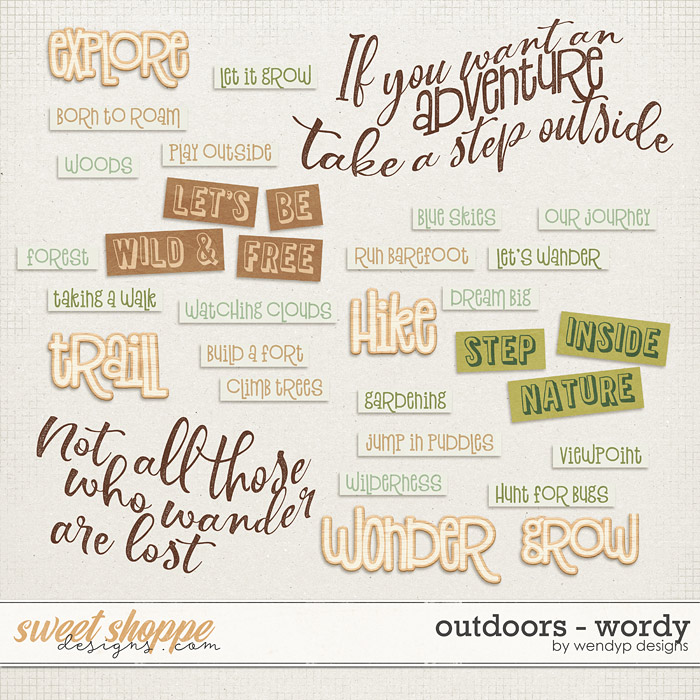 explore
Let it Grow
If you want an
adventure
take a step outside
Born to Roam
Woods
Play outside
LET'S BE
WILD & FREE
Blue skies
Our Journey
Forest
Run Barefoot
Let's wander
taking a walk
watching clouds
Hike
Dream Big
STEP INSIDE
NATURE
traill
Build a fort
climb trees
gardening
Jump in puddles
Viewpoint
Wilderness
Hunt for bugs
Not all those
who wander
are lost
wonder
grow
sweet shoppe
designs.com
outdoors - wordy
by wendyp designs